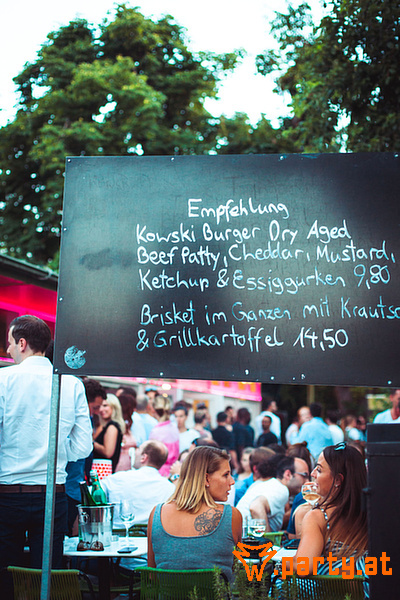 Empfehlung
Kowski Burger Dry Aged
Beef Patty, Cheddar, Mustard,
Ketchup & Essiggurken 9,80
Brisket im Ganzen mit Krautsa
& Grillkartoffel 14,50
w.party.at